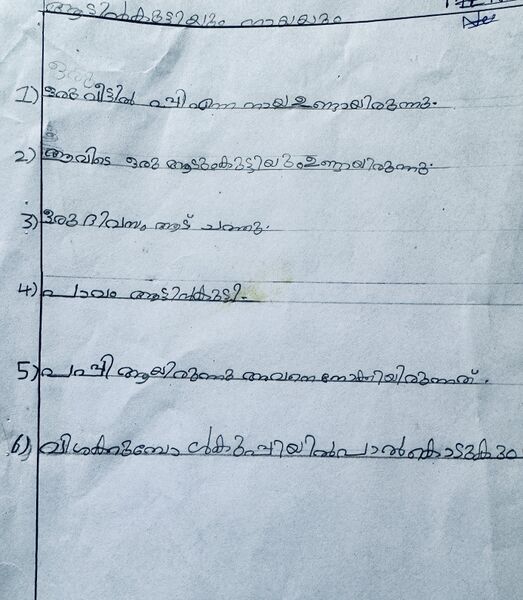 ആട്ടിൻകുട്ടിയും നായയും
1) ഒരു വീട്ടിൽ പപ്പി എന്ന നായ ഉണ്ടായിരുന്നു.
2) അവിടെ ഒരു ആടും കുട്ടിയും ഉണ്ടായിരുന്നു.
3) ഒരു ദിവസം ആട് ചത്തു.
4) പാവം ആട്ടിൻകുട്ടി.
5) പപ്പി ആയിരുന്നു അവനെ നോക്കിയിരുന്നത്.
6) വിശക്കുമ്പോൾ കുപ്പിയിൽ പാൽ കൊടുക്കും